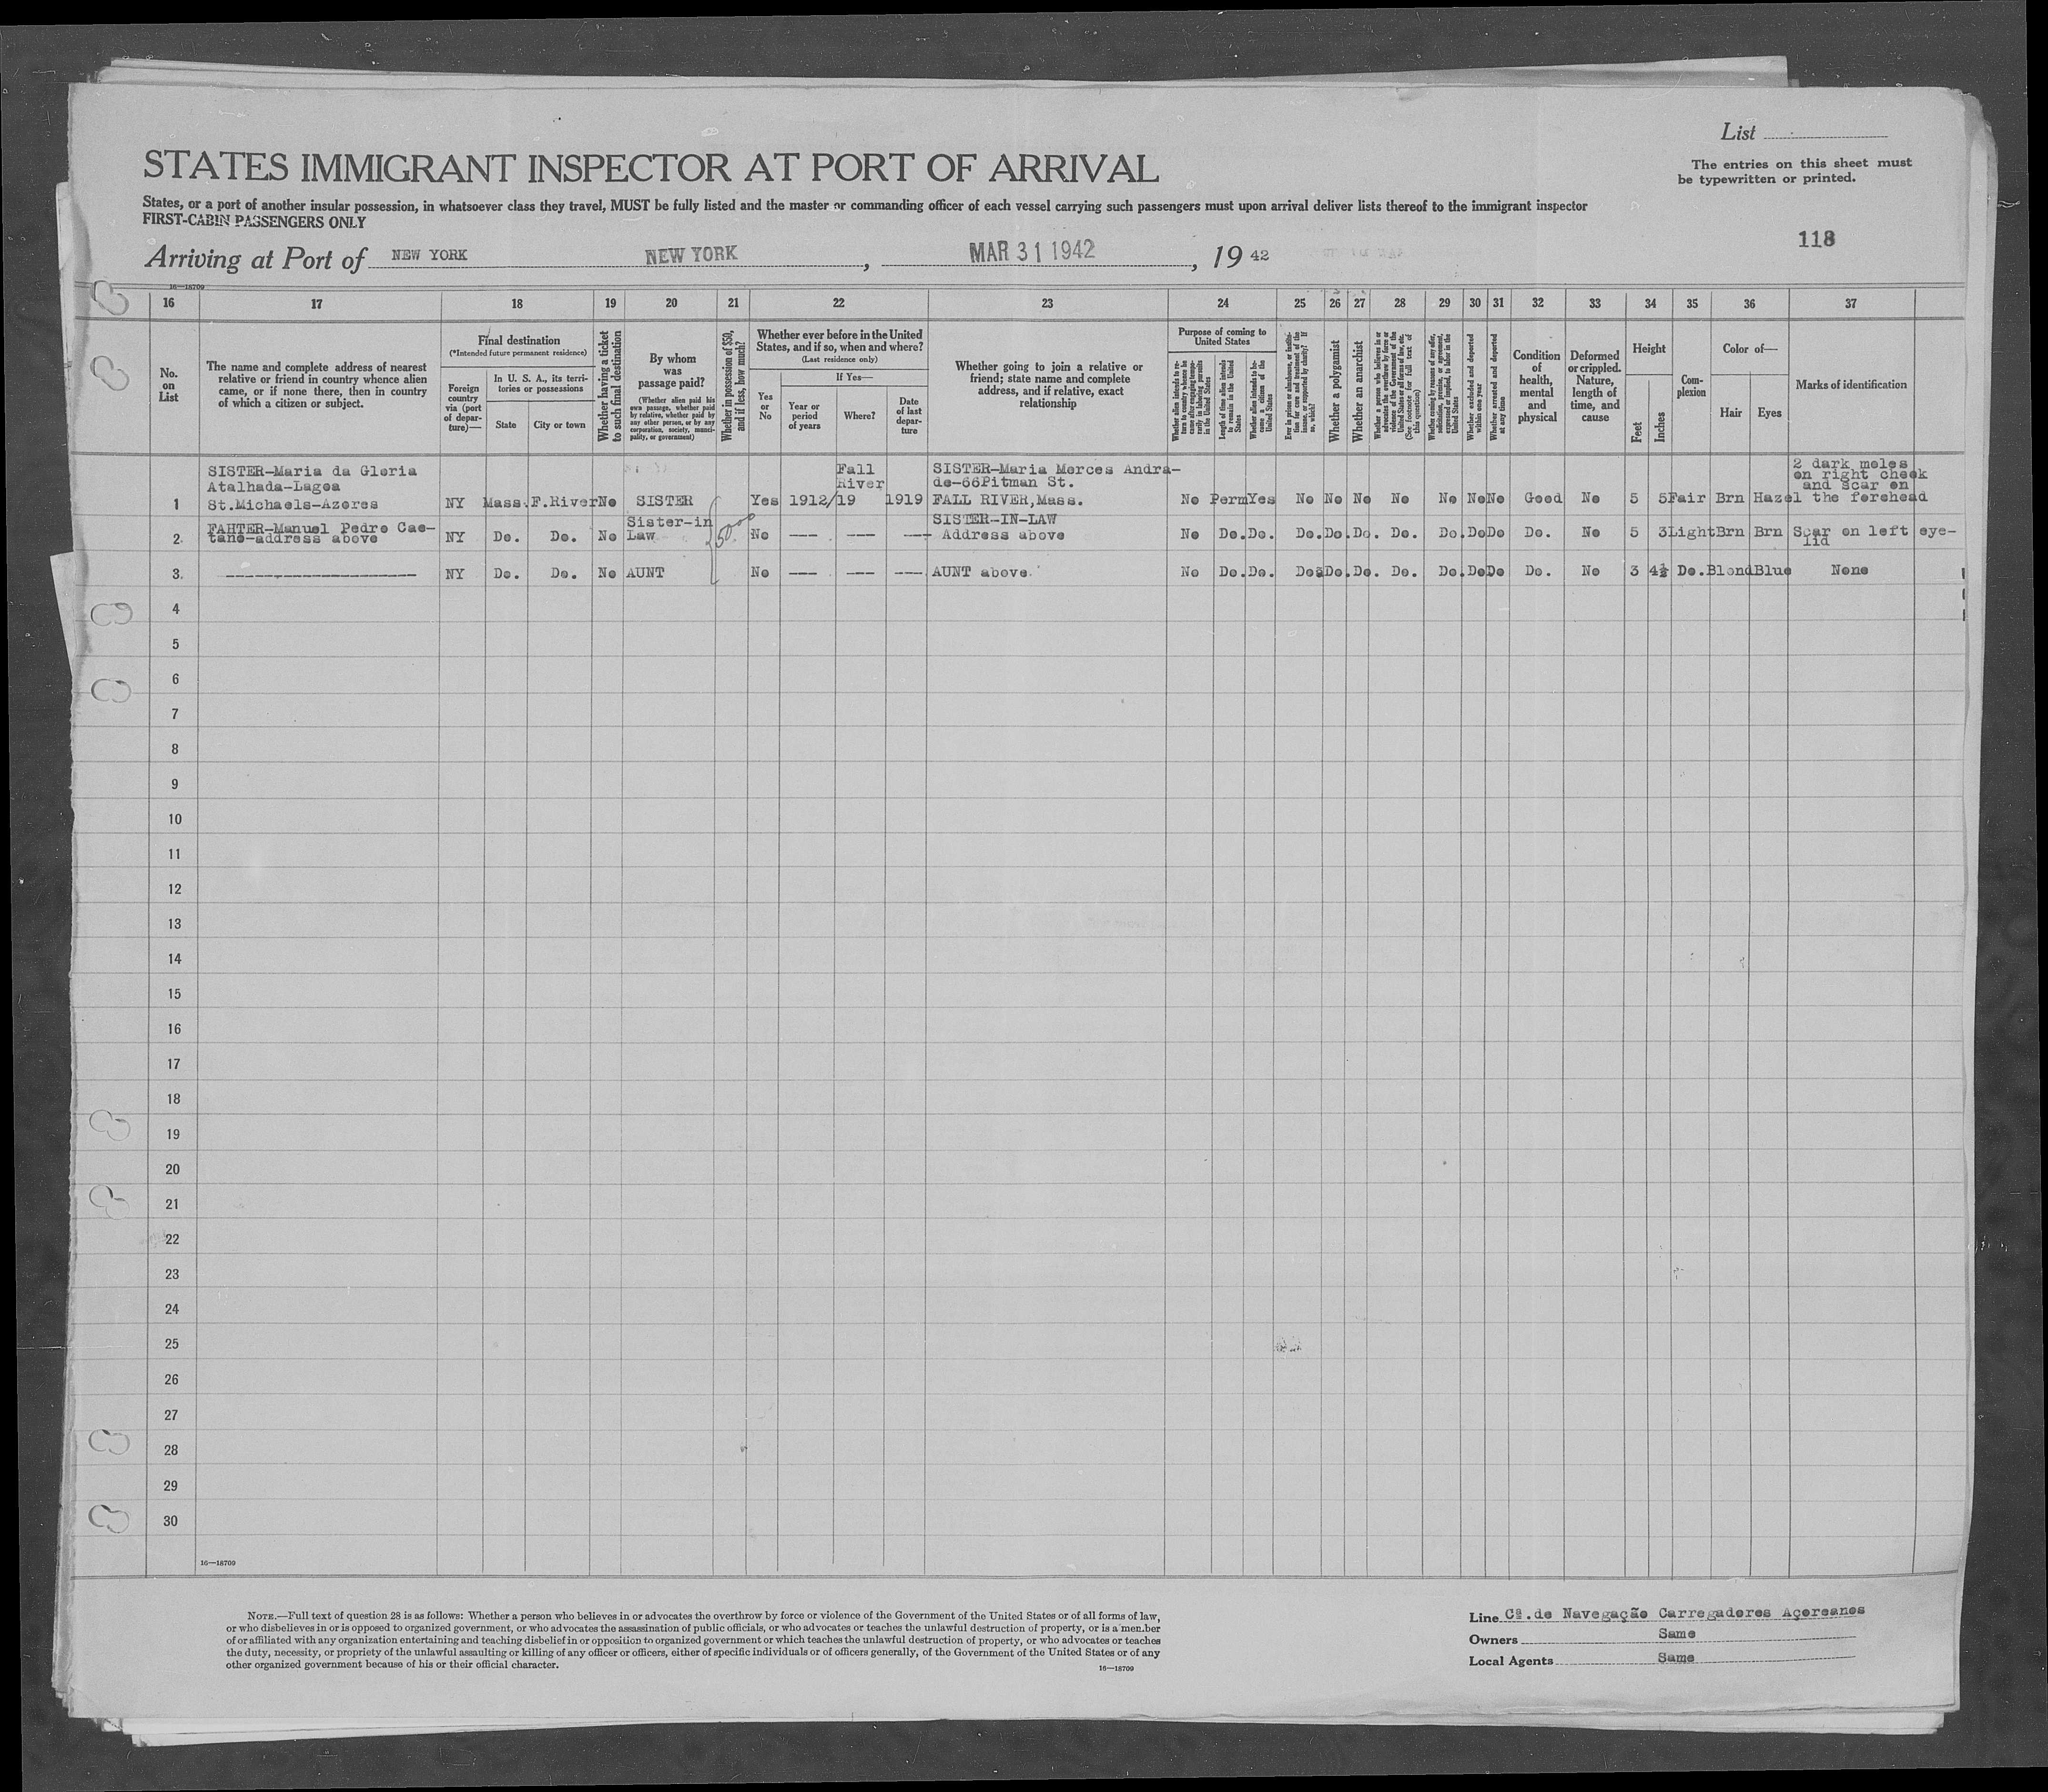 List
STATES IMMIGRANT INSPECTOR AT PORT OF ARRIVAL
The entries on this sheet must
be typewritten or printed.
States, or a port of another insular possession, in whatsoever class they travel, MUST be fully listed and the master or commanding officer of each vessel carrying such passengers must upon arrival deliver lists thereof to the immigrant inspector
FIRST-CABIN PASSENGERS ONLY
118
Arriving at Port of NEW YORK NEW YORK, MAR 31 1942, 19 42
16—18709
16 17 18 19 20 21 22 23 24 25 26 27 28 29 30 31 32 33 34 35 36 37
No.
on
List
The name and complete address of nearest
relative or friend in country whence alien
came, or if none there, then in country
of which a citizen or subject.
Final destination
(*Intended future permanent residence)
Foreign
country
via (port
of depar-
ture)—
In U. S. A., its terri-
tories or possessions
State
City or town
Whether having a ticket
to such final destination
By whom
was
passage paid?
(Whether alien paid his
own passage, whether paid
by relative, whether paid by
any other person, or by any
corporation, society, munici-
pality, or government)
Whether in possession of $50,
and if less, how much?
Whether ever before in the United
States, and if so, when and where?
(Last residence only)
Yes
or
No
If Yes—
Year or
period
of years
Where?
Date
of last
depar-
ture
Whether going to join a relative or
friend; state name and complete
address, and if relative, exact
relationship
Purpose of coming to
United States
Whether alien intends to re-
turn to country whence he
came after engaging tempo-
rarily in laboring pursuits
in the United States
Length of time alien intends
to remain in the United
States
Whether alien intends to be-
come a citizen of the
United States
Ever in prison or almshouse, or institu-
tion for care and treatment of the
insane, or supported by charity? If
so, which?
Whether a polygamist
Whether an anarchist
Whether a person who believes in or
advocates the overthrow by force or
violence of the Government of the
United States or all forms of law, etc.
(See footnote for full text of
this question)
Whether coming by reasons of any offer,
solicitation, promise, or agreement,
expressed or implied, to labor in the
United States
Whether excluded and deported
within one year
Whether arrested and deported
at any time
Condition
of
health,
mental
and
physical
Deformed
or crippled.
Nature,
length of
time, and
cause
Height
Feet
Inches
Com-
plexion
Color of—
Hair
Eyes
Marks of identification
SISTER-Maria da Gloria
Atalhada-Lagoa
1 St.Michaels-Azores NY Mass. F.River No SISTER Yes 1912/19
Fall
River
1919
SISTER-Maria Merces Andra-
de-66Pitman St.
FALL RIVER,Mass. No Perm Yes No No No No No No No Good No 5 5 Fair Brn Hazel
2 dark moles
on right cheek
and scar on
the forehead
FAHTER-Manuel Pedro Cae-
2 tano-address above NY Do. Do. No
Sister-in
Law
50.00
No --- --- ---
SISTER-IN-LAW
Address above No Do. Do. Do. Do. Do. Do. Do. Do Do Do. No 5 3 Light Brn Brn Scar on left eye-
lid
3 ------------------- NY Do. Do. No AUNT No --- --- --- AUNT above. No Do. Do. Do. Do. Do. Do. Do. Do Do Do. No 3 4½ Do. Blond Blue None
4
5
6
7
8
9
10
11
12
13
14
15
16
17
18
19
20
21
22
23
24
25
26
27
28
29
30
16—18709
NOTE.—Full text of question 28 is as follows: Whether a person who believes in or advocates the overthrow by force or violence of the Government of the United States or of all forms of law,
or who disbelieves in or is opposed to organized government, or who advocates the assassination of public officials, or who advocates or teaches the unlawful destruction of property, or is a member
of or affiliated with any organization entertaining and teaching disbelief in or opposition to organized government or which teaches the unlawful destruction of property, or who advocates or teaches
the duty, necessity, or propriety of the unlawful assaulting or killing of any officer or officers, either of specific individuals or of officers generally, of the Government of the United States or of any
other organized government because of his or their official character.
16—18709
Line Cª.de Navegação Carregadores Açoreanos
Owners Same
Local Agents Same